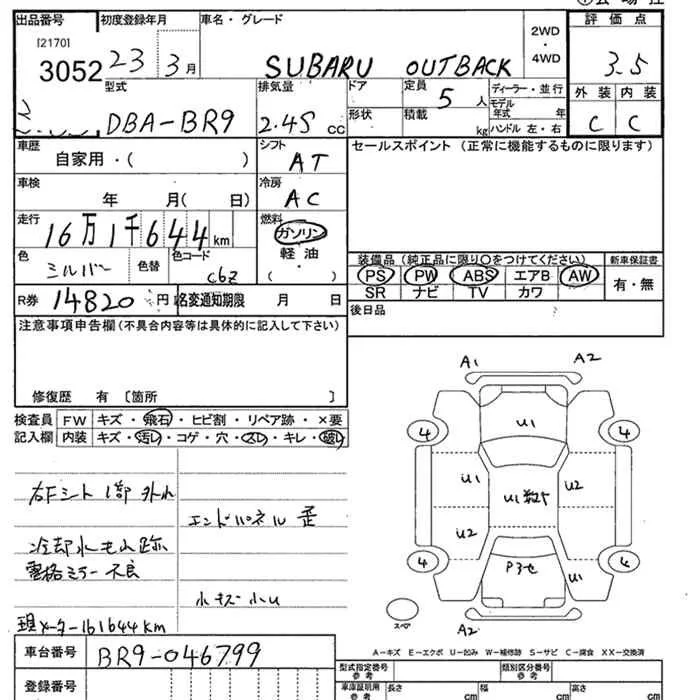 出品番号 初度登録年月 車名・グレード 2WD・4WD 評価点
[2170]
3052 23 3月 SUBARU OUTBACK 3.5
型式 排気量 ドア 定員 5人 ディーラー・並行 外装 内装
DBA-BR9 2.45 cc 形状 積載 kg モデル年式 年 ハンドル 左・右 C C
車歴 自家用・( ) シフト AT セールスポイント (正常に機能するものに限ります)
車検 年 月( 日) 冷房 AC
走行 16万1千644km 燃料 ガソリン 軽油・( )
色 シルバー 色替 色コード C6Z
装備品 (純正品に限り○をつけてください) 新車保証書
PS PW ABS エアB AW 有・無
SR ナビ TV カワ
R券 14820円 名変通知期限 月 日 後日品
注意事項申告欄(不具合内容等は具体的に記入して下さい)
修復歴 有 [箇所 ]
検査員 FW キズ・飛石・ヒビ割・リペア跡・×要
記入欄 内装 キズ・汚レ・コゲ・穴・スレ・キレ・破レ
右Fシート 1部 外れ
エンドパネル 歪
冷却水もれ跡
電格ミラー不良
小キズ 小U
現メーター161644km
A1 A2
4 U1 4
U1 U1 U2
U2
4 U1 4
スペア A2
A-キズ E-エクボ U-凹み W-補修跡 S-サビ C-腐食 XX-交換済
車台番号 BR9-046799
登録番号
型式指定番号 参考 類別区分番号 参考
車庫証明用 参考 長さ cm 幅 cm 高さ cm